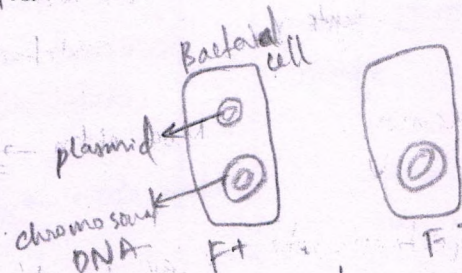 Bacterial
cell
plasmid
chromosomal
DNA
F+
F-